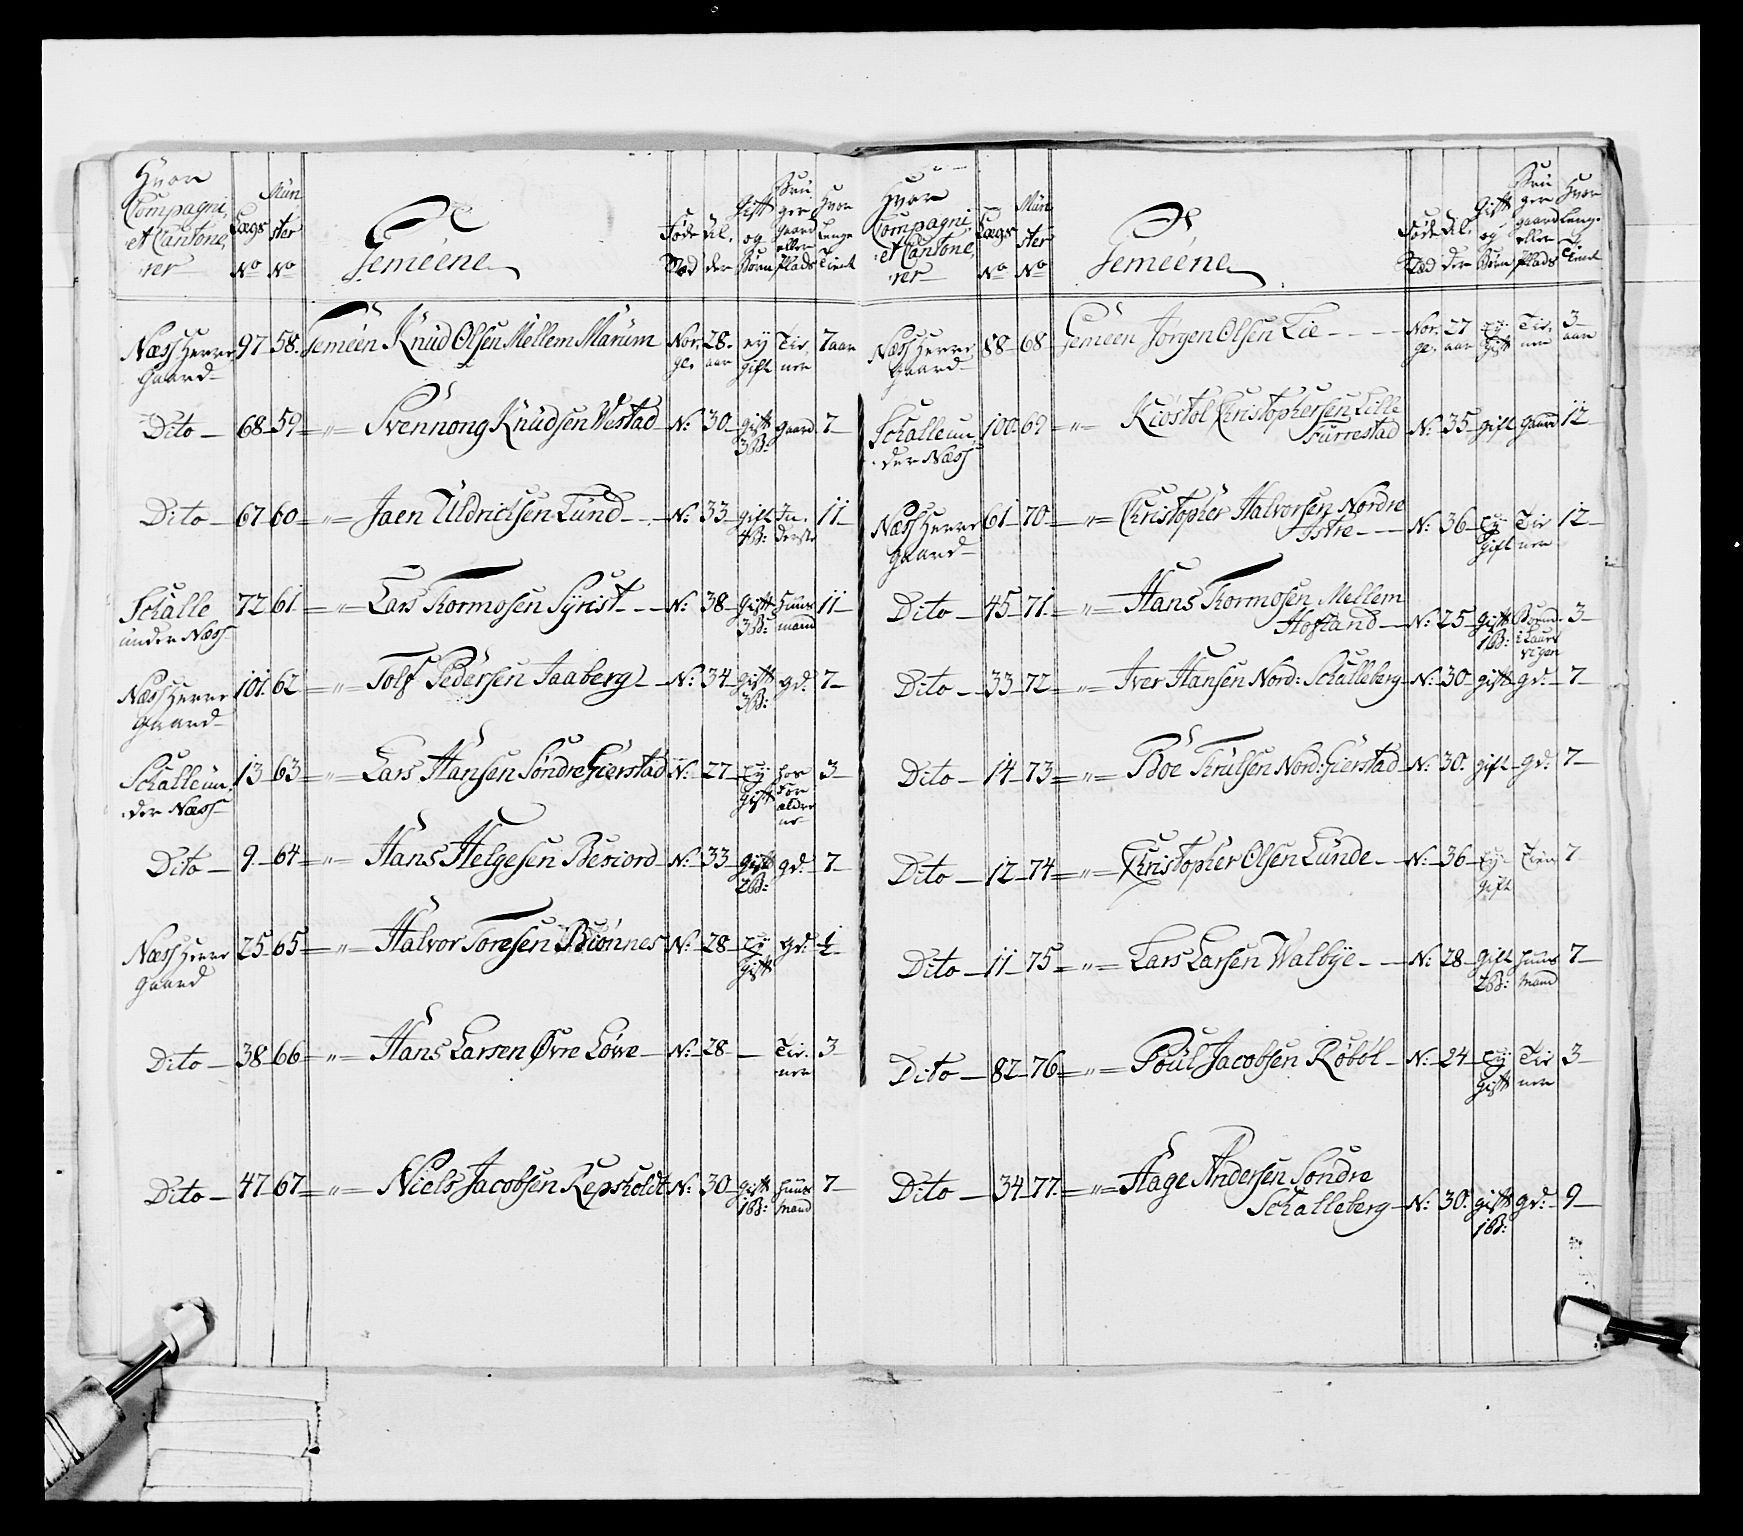 Hvor Compagni, et Cantone, rer
Lægs No
Mün ster No
Gemeene
Føde Stæd
Al. der
Gift og Børn
Brü ger gaard eller Plads
Hvor Lenge Tient
Næss Herre Gaard 97 58. Gemeen Knüd Olsen Mellem Marüm Nor, ge. 28. aar ey gift Tie, ner 7 aar
Dito 68 59 " Svennong Knüdsen Westad N: 30 gift 3B: gaard 7
Dito 67 60 " Jaen Uldrichsen Lünd N: 33 gift 4B: In, derste 11
Schalle under Næss 72 61 " Lars Thormosen Syrist N: 38 gift 3B: Huus mand 11
Næss Herre Gaard 101. 62 " Tolf Pedersen Jaaberg N: 34 gift 3B: gd: 7
Schalle un, der Næss 13 63 " Lars Hansen Søndre Gierstad N: 27 Ey gift hos For ældre ne 3
Dito 9. 64 " Hans Helgesen Besiord N: 33 gift 2B: gd: 7
Næss Herre Gaard 25 65 " Halvor Toresen Biønnes N: 28 Ey gift gd: ½
Dito 38 66 " Hans Larsen Øvre Løwe N: 28 — Tie, ner 3
Dito 47 67 " Niels Jacobsen Repsholdt N: 30 gift 1B: Huus mand 7
Hvor Compagni, et Cantone, rer
Lægs No
Mün ster No
Gemeene
Føde Stæd
Al. der
Gift og Børn
Brü ger gaard eller Plads
Hvor Leng. Tient
Næss Herre Gaard 88 68 Gemeen Jørgen Olsen Lie Nor. ge. 27 aar Ey gift Tie, ner 3 aar
Schalle un, der Næss 100. 69 " Kiøstol Christophersen Lille
Fürrestad N: 35 gift gaard 12
Næss Herre Gaard 61 70 " Christopher Halvorsen Nordre
Istre N: 36 Ey gift Tie ner 12
Dito 45 71. " Hans Thormosen Mellem
Hofland N: 25 gift 1B: Boend. i Laur vigen 3
Dito 33 72 " Iver Hansen Nord: Schalleberg N: 30 gift gd: 7
Dito 14 73 " Boe Thrulsen Nord: Gierstad N: 30. gift gd: 7
Dito 12 74 " Christopher Olsen Lünde N: 36 Ey gift Tien 7
Dito 11 75 " Lars Larsen Walbye N: 28 gift 2B: Huus mand 7
Dito 82 76 " Poul Jacobsen Røbøl N: 24 Ey gift Tie ner 3
Dito 34 77. " Hage Andersen Søndre
Schalleberg N: 30. gift 1B: gd: 9